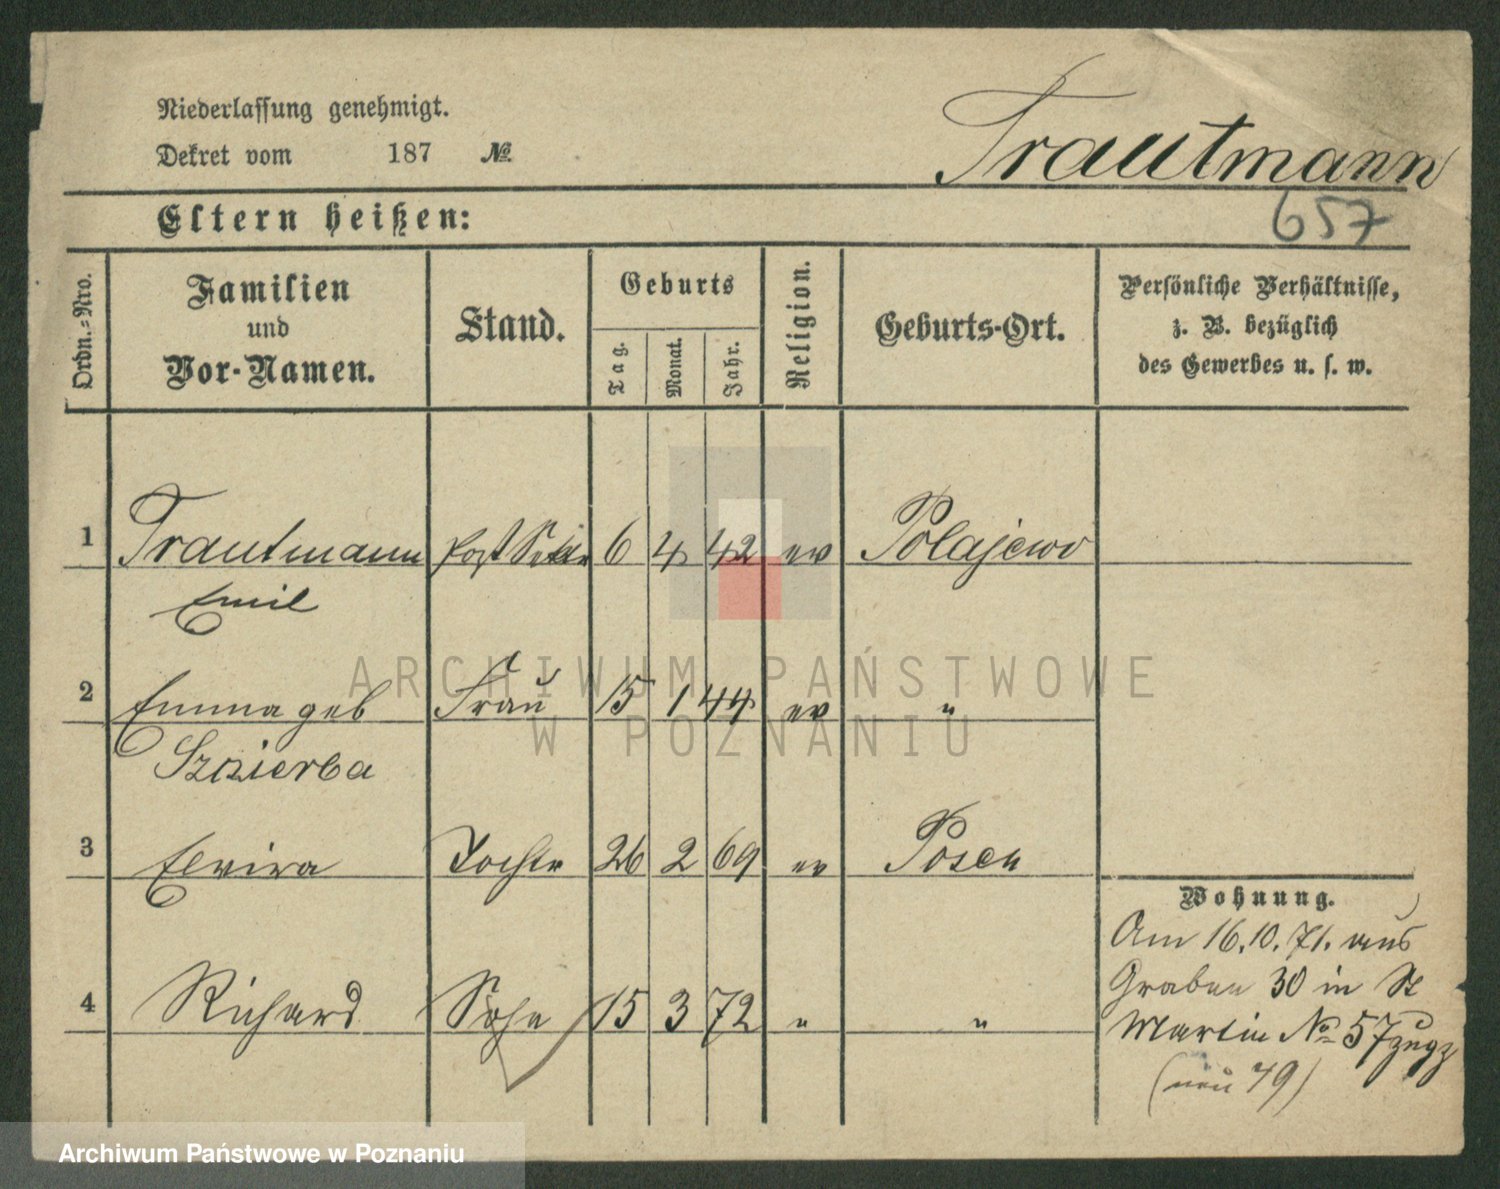 Niederlassung genehmigt.
Dekret vom 187 №
Trautmann
657
Eltern heißen:
Ordn.=Nro.
Familien und Vor-Namen.
Stand.
Geburts
Tag.
Monat.
Jahr.
Religion.
Geburts-Ort.
Persönliche Verhältnisse,
z. B. bezüglich
des Gewerbes u. s. w.
1 Trautmann Post 6 4 42 ev Polajewo
Emil
2 Emma geb Frau 15 1 44 ev "
Szczierba
3 Elvira Tochter 26 2 69 ev Posen
4 Richard Sohn 15 3 72 " "
Wohnung.
Am 16.10.71. aus
Graben 30 in St
Martin No 57 zugz
(neu 79)
ARCHIWUM PAŃSTWOWE
W POZNANIU
Archiwum Państwowe w Poznaniu